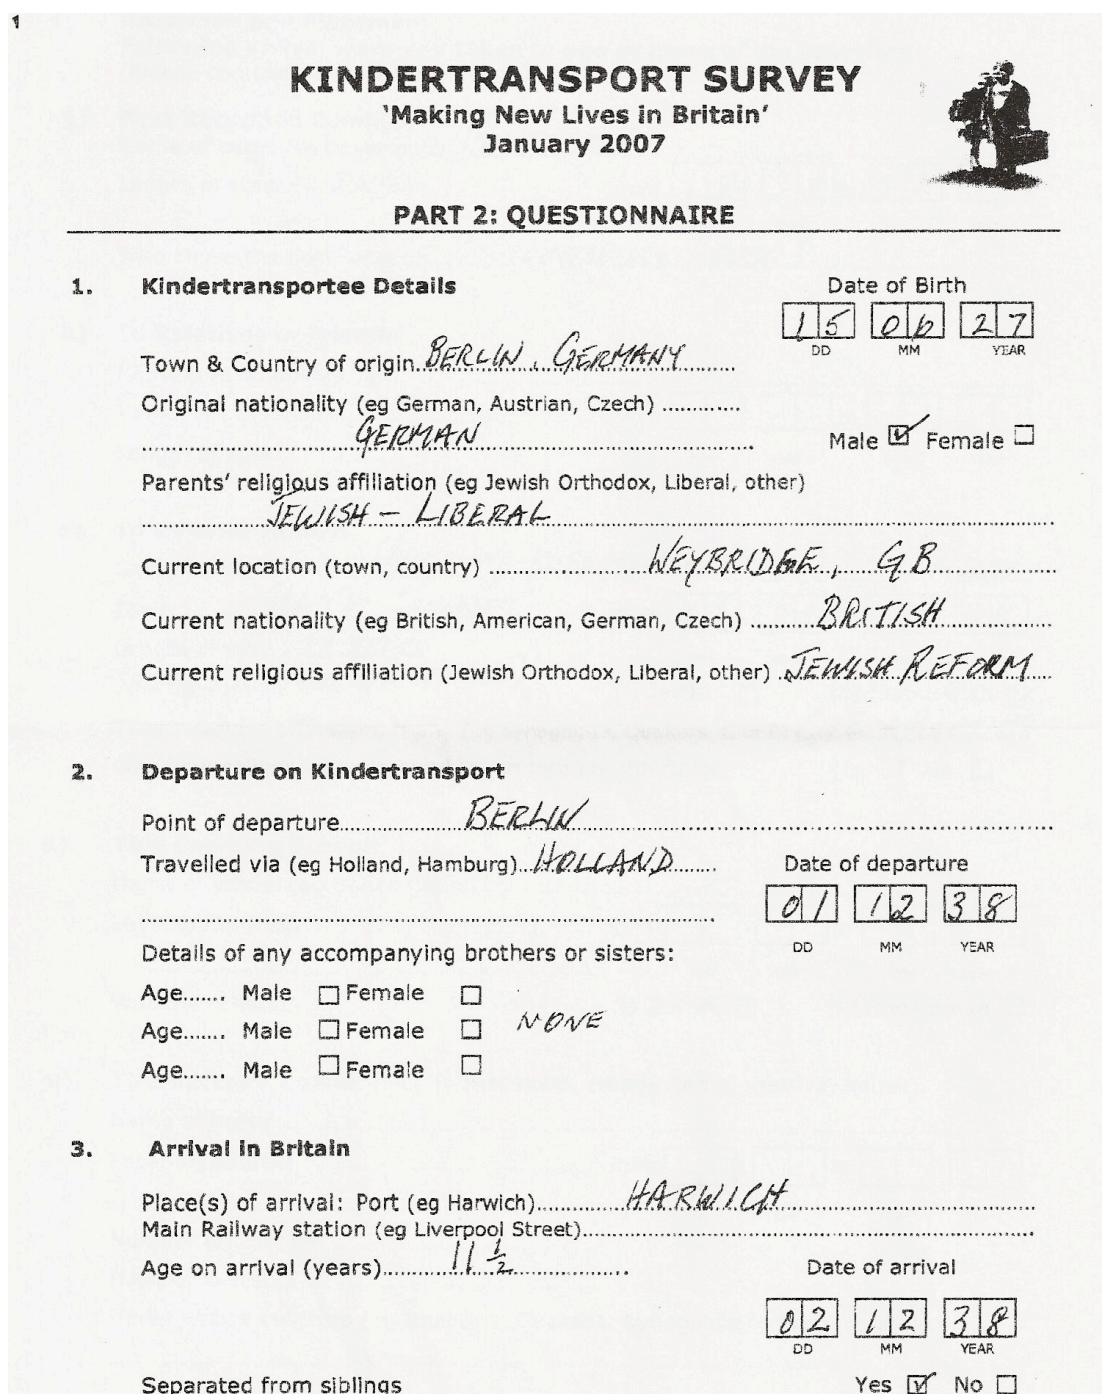 1
KINDERTRANSPORT SURVEY
'Making New Lives in Britain'
January 2007
PART 2: QUESTIONNAIRE
1. Kindertransportee Details Date of Birth
15 06 27
DD MM YEAR
Town & Country of origin..BERLIN, GERMANY..........
Original nationality (eg German, Austrian, Czech) .............
GERMAN Male ☑ Female ☐
Parents' religious affiliation (eg Jewish Orthodox, Liberal, other)
JEWISH - LIBERAL
Current location (town, country) .......... WEYBRIDGE, GB
Current nationality (eg British, American, German, Czech) .......... BRITISH
Current religious affiliation (Jewish Orthodox, Liberal, other) . JEWISH REFORM
2. Departure on Kindertransport
Point of departure.......... BERLIN
Travelled via (eg Holland, Hamburg).. HOLLAND Date of departure
01 12 38
DD MM YEAR
Details of any accompanying brothers or sisters:
Age....... Male ☐ Female ☐
Age....... Male ☐ Female ☐ NONE
Age....... Male ☐ Female ☐
3. Arrival in Britain
Place(s) of arrival: Port (eg Harwich).......... HARWICH
Main Railway station (eg Liverpool Street)..........
Age on arrival (years).......... 11 ½ Date of arrival
02 12 38
DD MM YEAR
Separated from siblings Yes ☑ No ☐